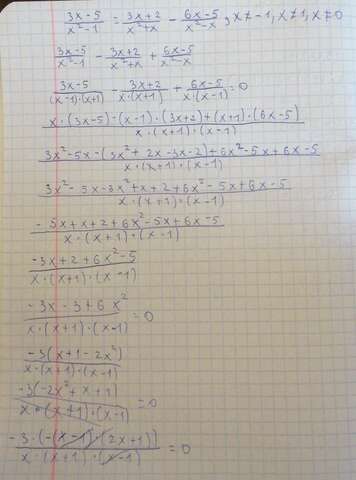 (3x-5)/(x²-1) = (3x+2)/(x²+x) - (6x-5)/(x²-x), x≠-1, x≠1, x≠0
(3x-5)/(x²-1) - (3x+2)/(x²+x) + (6x-5)/(x²-x)
(3x-5)/((x-1)·(x+1)) - (3x+2)/(x·(x+1)) + (6x-5)/(x·(x-1)) = 0
(x·(3x-5)-(x-1)·(3x+2)+(x+1)·(6x-5))/(x·(x+1)·(x-1))
(3x²-5x-(3x²+2x-3x-2)+6x²-5x+6x-5)/(x·(x+1)·(x-1))
(3x²-5x-3x²+x+2+6x²-5x+6x-5)/(x·(x+1)·(x-1))
(-5x+x+2+6x²-5x+6x-5)/(x·(x+1)·(x-1))
(-3x+2+6x²-5)/(x·(x+1)·(x-1))
(-3x-3+6x²)/(x·(x+1)·(x-1)) = 0
(-3(x+1-2x²))/(x·(x+1)·(x-1))
(-3(-2x²+x+1))/(x·(x+1)·(x-1)) = 0
(-3·(-(x-1)·(2x+1)))/(x·(x+1)·(x-1)) = 0